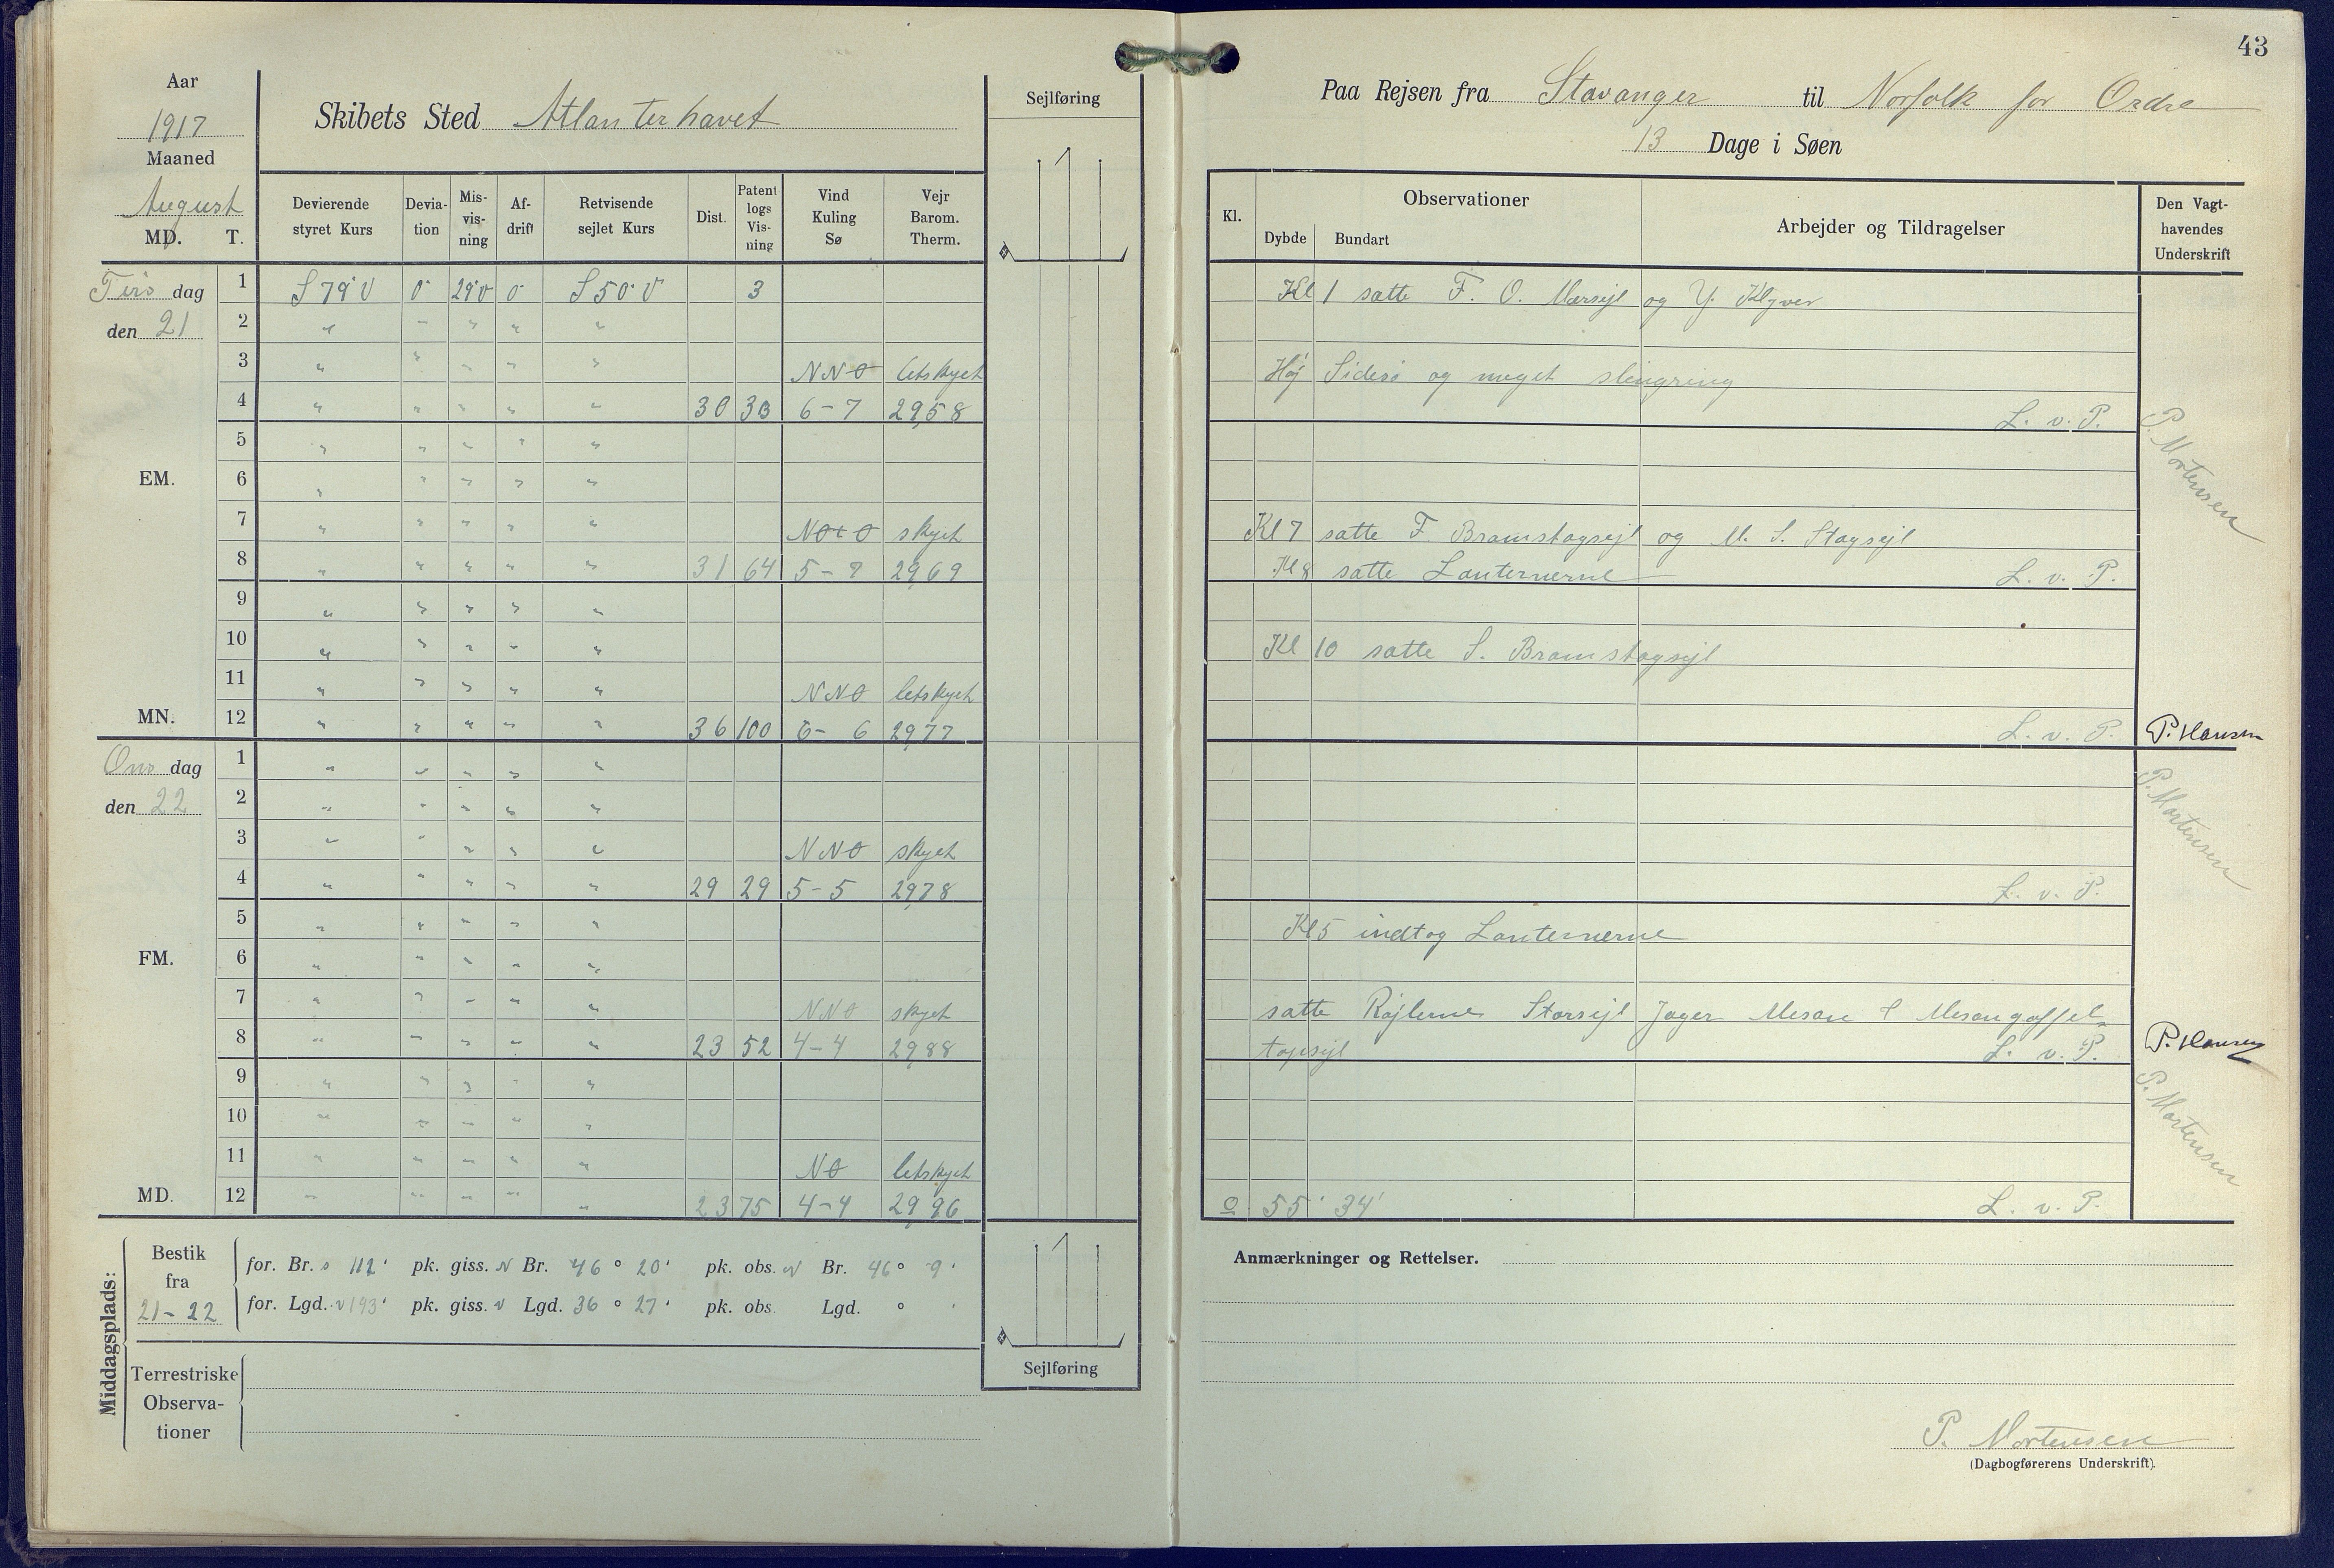 43
Aar
1917
Maaned
August
MD. T.
Skibets Sted Atlanterhavet
Sejlføring
Paa Rejsen fra Stavanger til Norfolk for Ordre
13 Dage i Søen
Devierende styret Kurs
Devia-tion
Mis-vis-ning
Af-drift
Retvisende sejlet Kurs
Dist.
Patent logs Vis-ning
Vind Kuling Sø
Vejr Barom. Therm.
Kl.
Observationer
Dybde Bundart
Arbejder og Tildragelser
Den Vagt-havendes Underskrift
Tirs dag 1 S 79° V 0° 29° V 0° S 50° V 3
den 21 2 " " " " "
3 " " " " " NNO letskyet
4 " " " " " 30 33 6-7 29,58
5 " " " " "
EM. 6 " " " " "
7 " " " " " NOtO skyet
8 " " " " " 31 64 5- 29,69
9 " " " " "
10 " " " " "
11 " " " " " NNO letskyet
MN. 12 " " " " " 36 100 6- 6 29,77
Ons dag 1 " " " " "
den 22 2 " " " " "
3 " " " " " NNO skyet
4 " " " " " 29 29 5-5 29,78
5 " " " " "
FM. 6 " " " " "
7 " " " " " NNO skyet
8 " " " " " 23 52 4-4 29,88
9 " " " " "
10 " " " " "
11 " " " " " NO letskyet
MD. 12 " " " " " 23 75 4-4 29,96
Middagsplads:
Bestik fra 21-22
for. Br. S 112' pk. giss. N Br. 46° 20' pk. obs. N Br. 46° 9'
for. Lgd. V 193' pk. giss. V Lgd. 36° 27' pk. obs. Lgd. ° '
Terrestriske Observa-tioner
Sejlføring
Kl 1 satte F. O. Mersejl og Y. Klyver
Høj Sidesø og meget slingring
L. v. P.
P. Mortensen
Kl 7 satte F. Bramstagsejl og M. S. Stagsejl
Kl 8 satte Lanternerne L. v. P.
Kl 10 satte S. Bramstagsejl
L. v. P. P. Hansen
P. Mortensen
L. v. P.
Kl 5 indtog Lanternerne
satte Røjlerne Storsejl Jager Mesan & Mesangaffel
topsejl L. v. P. P. Hansen
P. Mortensen
55° 34' L. v. P.
Anmærkninger og Rettelser.
P. Mortensen
(Dagbogførerens Underskrift).